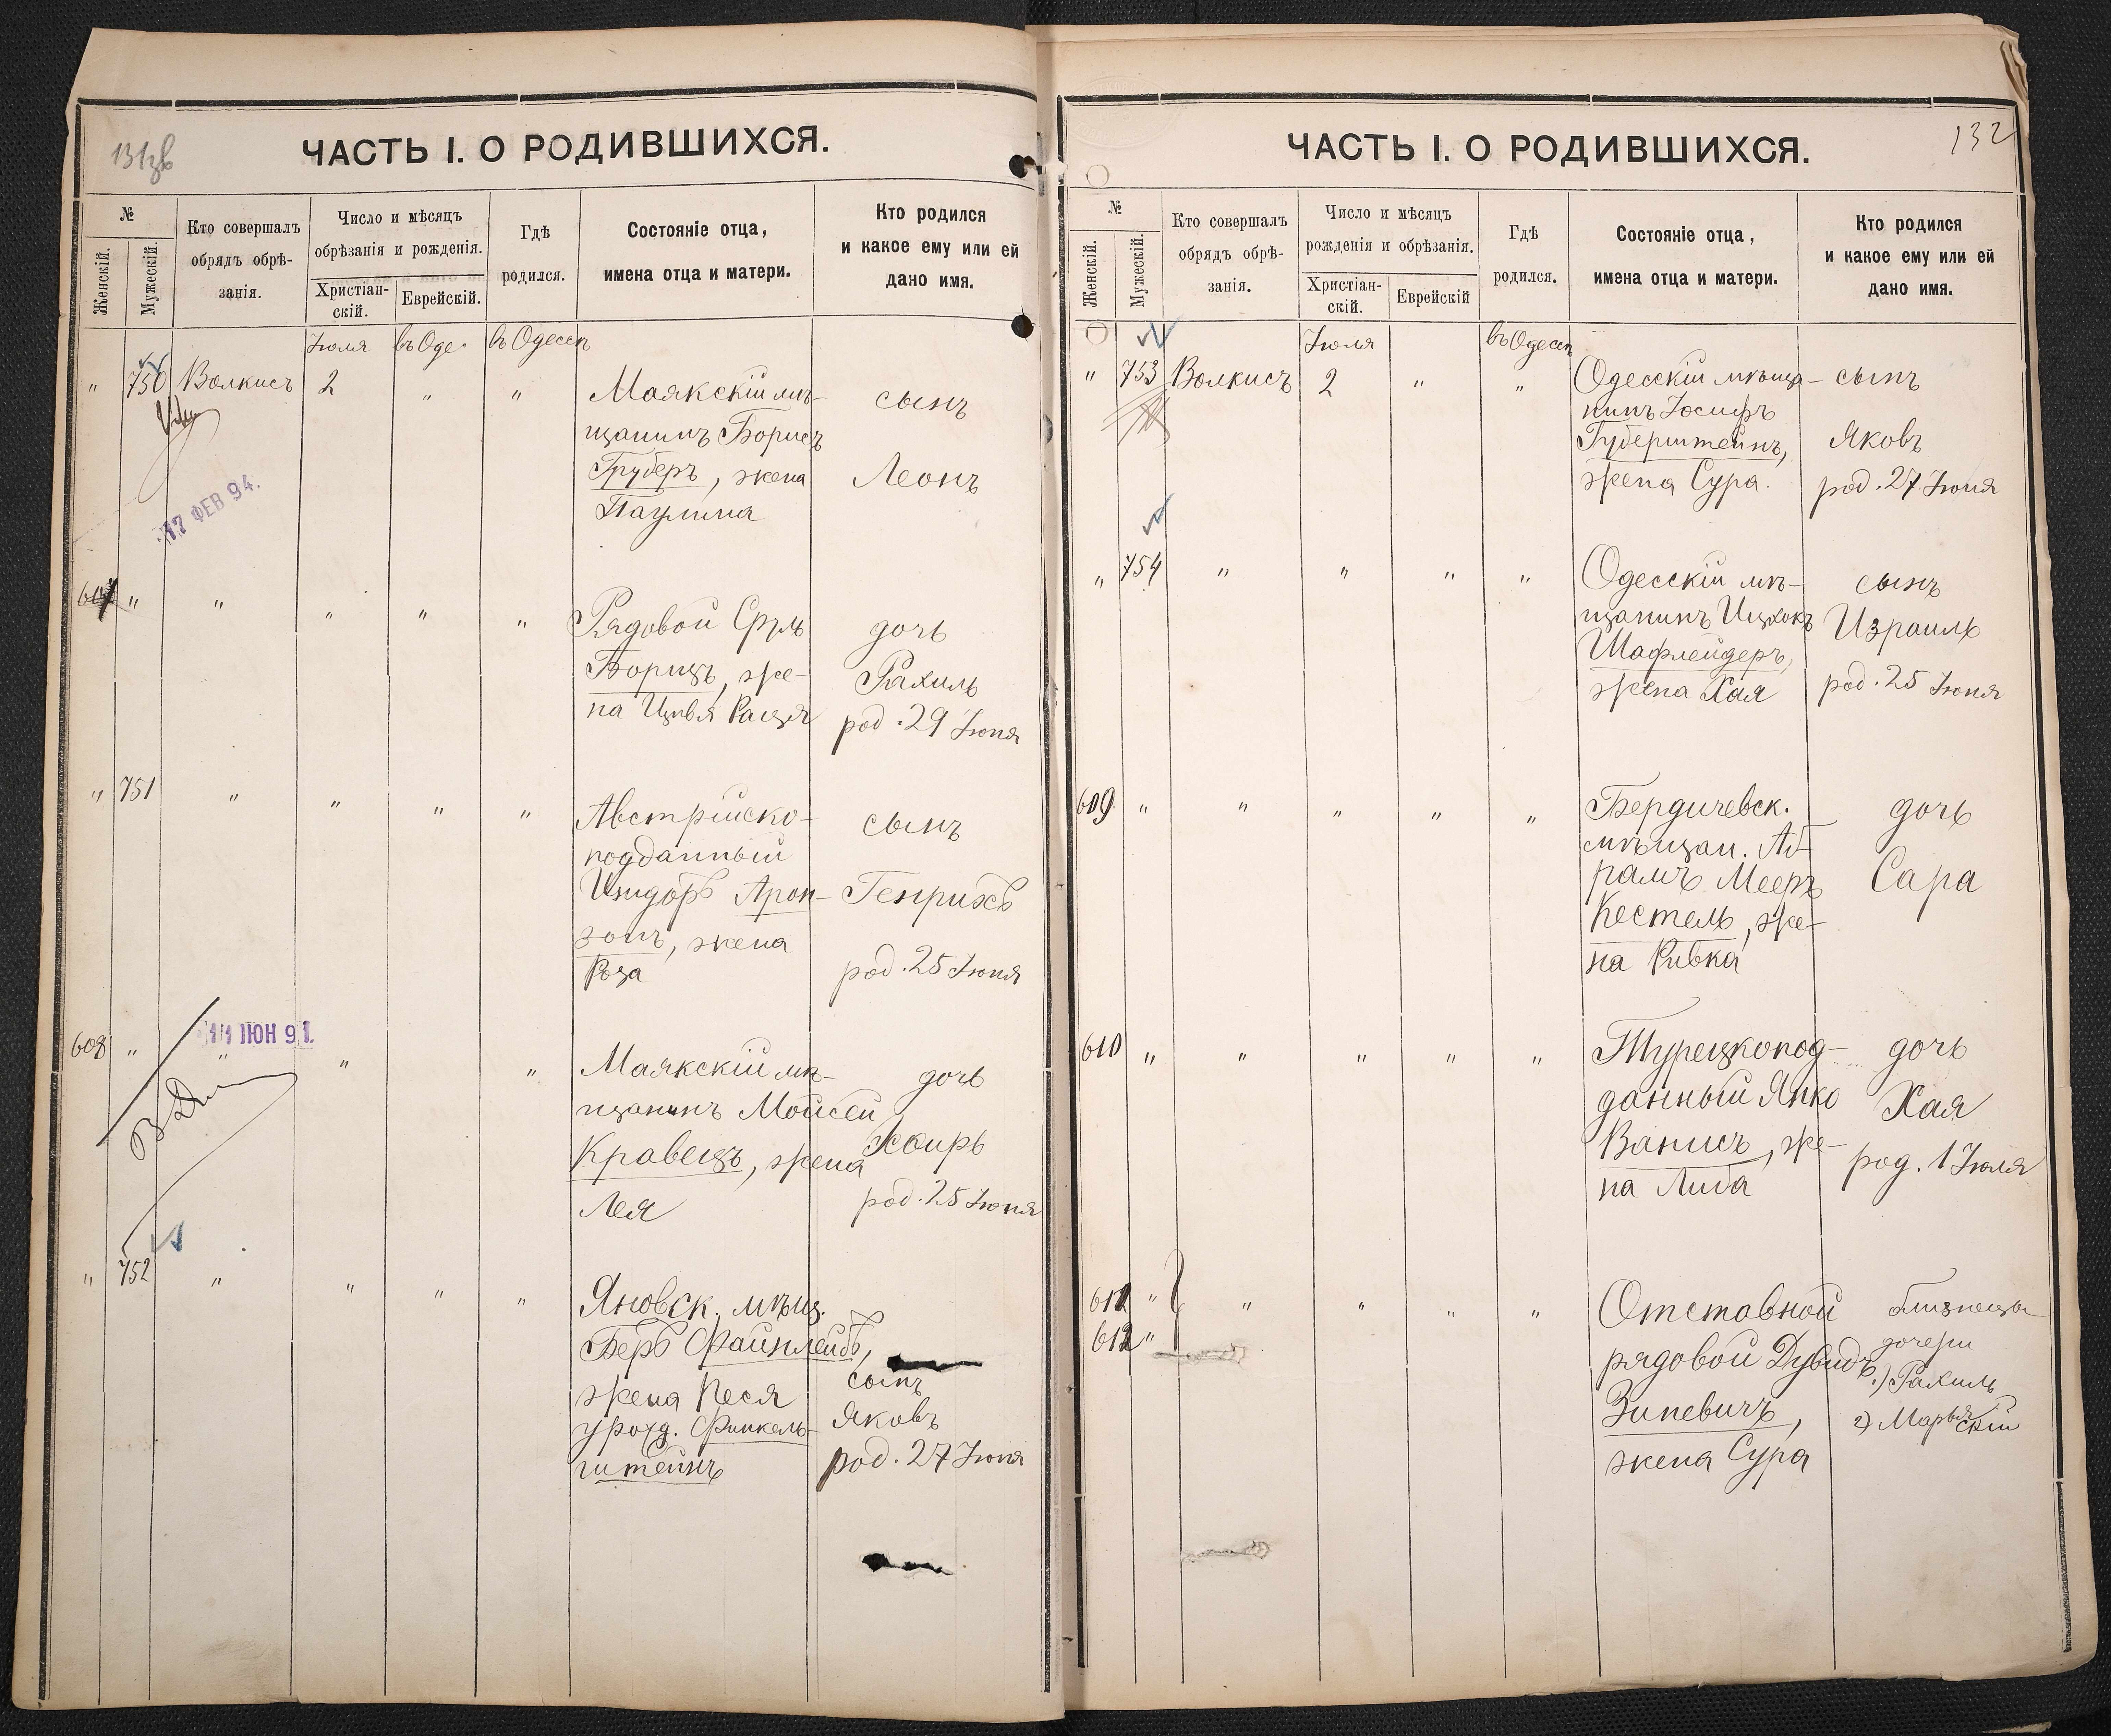 131зв
ЧАСТЬ I. О РОДИВШИХСЯ.
№
Женскій.
Мужескій.
Кто совершалъ
обрядъ обрѣ-
занія.
Число и мѣсяцъ
обрѣзанія и рожденія.
Христіан-
скій.
Еврейскій.
Гдѣ
родился.
Состояніе отца,
имена отца и матери.
Кто родился
и какое ему или ей
дано имя.
Іюля въ Оде. въ Одессѣ
" 750 Волкисъ 2 " "
Маякскій мѣ-
щанинъ Борисъ
Груберъ, жена
Паулина
сынъ
Леонъ
17 ФЕВ 94.
" " " " "
Рядовой Сруль
Борищъ, же-
на Цивья Раиця
дочь
Рахиль
род. 29 Іюня
" 751 " " " "
Австрійско-
подданный
Изидоръ Арон-
зонъ, жена
Роза
сынъ
Генрихъ
род. 25 Іюня
608 " " " "
11 ІЮН 91.
Маякскій мѣ-
щанинъ Мойсей
Кравецъ, жена
Лея
дочь
Эсѳирь
род. 25 Іюня
" 752 " " " "
Яновск. мѣщ.
Беръ Файнлейбъ,
жена Песя
урожд. Финкель-
штейнъ
сынъ
Яковъ
род. 27 Іюня
132
ЧАСТЬ I. О РОДИВШИХСЯ.
№
Женскій.
Мужескій.
Кто совершалъ
обрядъ обрѣ-
занія.
Число и мѣсяцъ
рожденія и обрѣзанія.
Христіан-
скій.
Еврейскій
Гдѣ
родился.
Состояніе отца,
имена отца и матери.
Кто родился
и какое ему или ей
дано имя.
Іюля въ Одессѣ
" 753 Волкисъ 2 " "
Одесскій мѣща-
нинъ Іосифъ
Губерштейнъ,
жена Сура.
сынъ
Яковъ
род. 27 Іюня
" 754 " " " "
Одесскій мѣ-
щанинъ Ицхокъ
Шафлейдеръ,
жена Хая
сынъ
Израиль
род. 25 Іюня
609 " " " " "
Бердичевск.
мѣщан. Аб-
рамъ Мееръ
Кестель, же-
на Ривка
дочь
Сара
610 " " " " "
Турецкопод-
данный Янко
Ванисъ, же-
на Либа
дочь
Хая
род. 1 Іюля
611 " " " " "
612 "
Отставной
рядовой Дувидъ
Зиневичъ,
жена Сура
близнецы
дочери
1) Рахиль
2) Марья